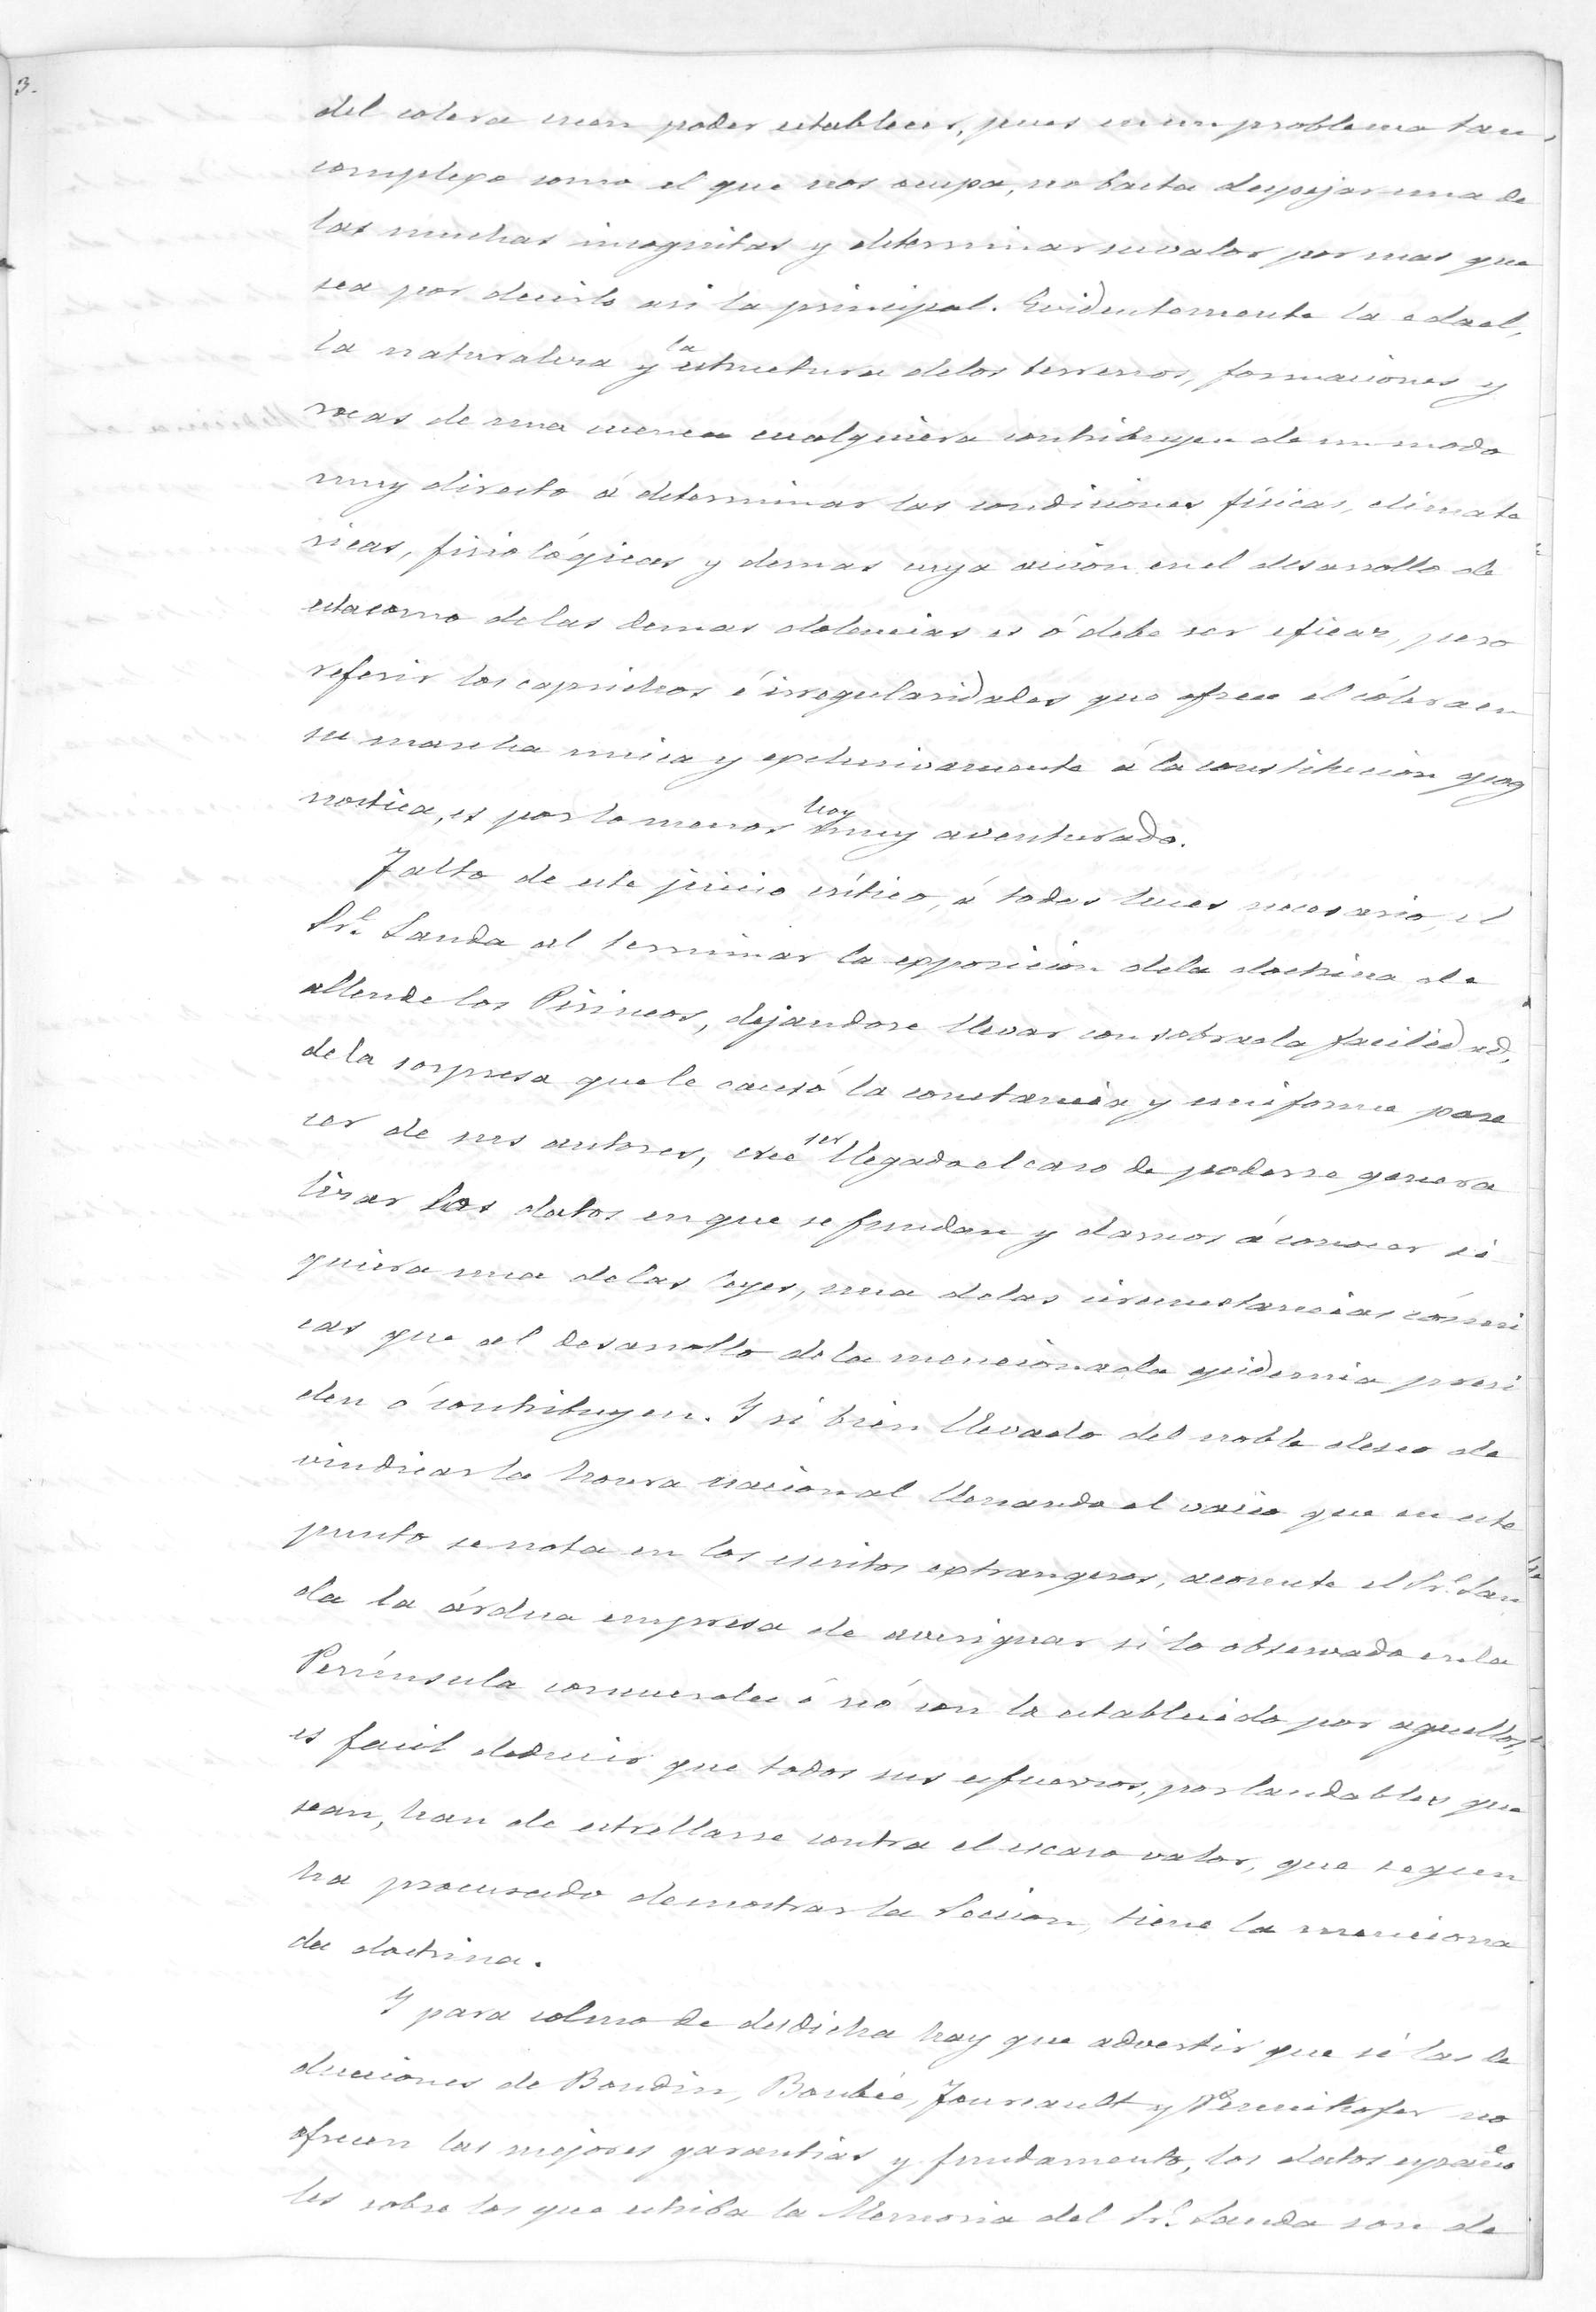 3.
del colera creen poder establecer, pues en un problema tan
complexo como el que nos ocupa, no basta despejar una de
las muchas incognitas y determinar su valor por mas que
sea por decirlo asi la principal. Evidentemente la edad,
la naturaleza y la estructura de los terrenos, formaciones y
rocas de una cuenca cualquiera contribuyen de un modo
muy directo á determinar las condiciones físicas, climate
ricas, fisiológicas y demas cuya accion en el desarrollo de
esta como de las demas dolencias es ó debe ser eficaz, pero
referir los caprichos é irregularidades que ofrece el cólera en
su marcha unica y exclusivamente á la constitucion geog
nostica, es por lo menos hoy muy aventurado.
Falto de este juicio crítico, á todas luces necesario, el
Sr. Landa al terminar la exposicion de la doctrina de
allende los Pirineos, dejandose llevar con sobrada facilidad,
de la sorpresa que le causó la constancia y uniforme pare
cer de sus autores, creé ser llegado el caso de poderse genera
lizar los datos en que se fundan y darnos á conocer si
quiera una de las leyes, una de las circunstancias cósmi
cas que al desarrollo de la mencionada epidemia presi
den ó contribuyen. Y si bien llevado del noble deseo de
vindicar la honra nacional llenando el vacio que en este
punto se nota en los escritos extrangeros, acomete el Sr. Lan
da la árdua empresa de averiguar si lo observado en la
Península concuerda ó nó con lo establecido por aquellos,
es facil deducir que todos sus esfuerzos, por laudables que
sean, han de estrellarse contra el escaso valor, que segun
ha procurado demostrar la Seccion, tiene la menciona
da doctrina.
Y para colmo de desdicha hay que advertir que si las de
ducciones de Boudin, Boubée, Fourcault y Pettenkofer no
ofrecen las mejores garantias y fundamento, los datos españo
les sobre los que estriba la Memoria del Sr. Landa son de